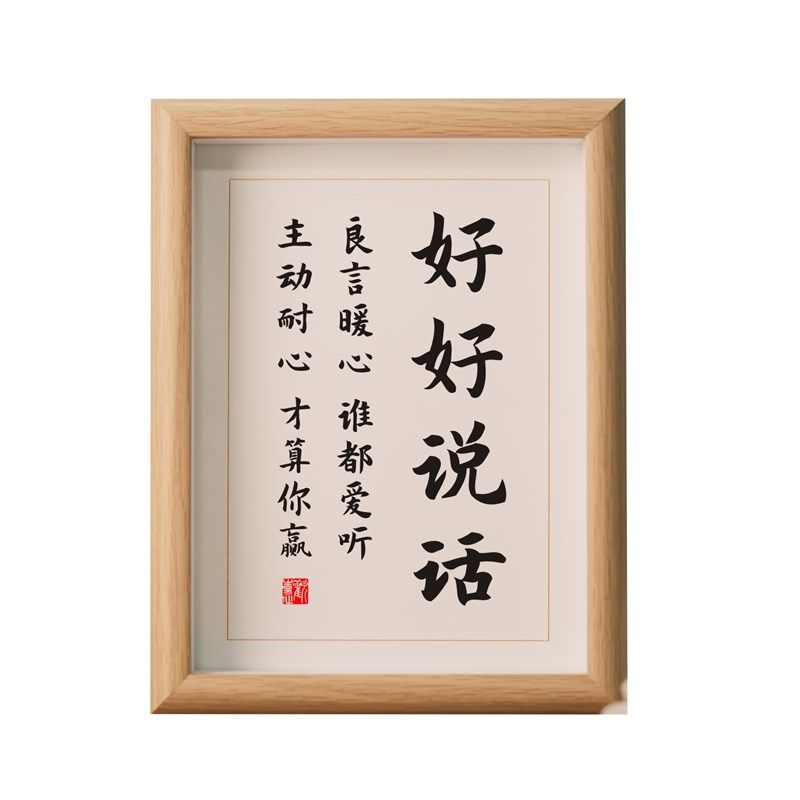 好好说话
良言暖心 谁都爱听
主动耐心 才算你赢